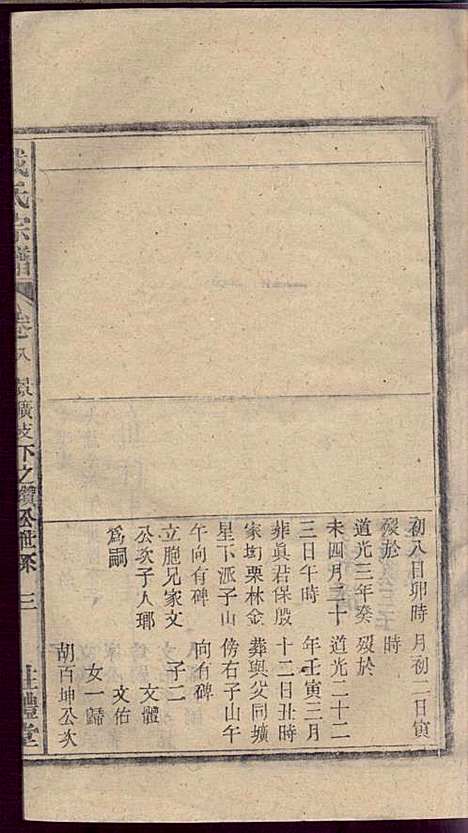 初八日卯時
歿於
道光三年癸
未四月三十
三日午時
葬真君保殷
家㘭栗林金
星下派子山
午向有碑
立胞兄家文
公次子人瑯
爲嗣
月初二日寅
時
歿於
道光二十二
年壬寅三月
十二日丑時
葬與父同壙
傍右子山午
向有碑
子二
文體
文佑
女一歸
胡百坤公次
氏宗譜
卷八
支下之鑽公世系
三
禮堂